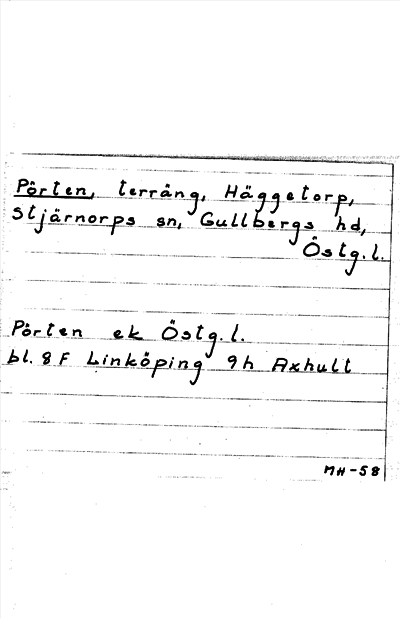 Pörten, terräng, Häggetorp,
Stjärnorps sn, Gullbergs hd,
Östg.l.
Pörten ek Östg.l.
bl. 8 F Linköping 9h Axhult
MH-58